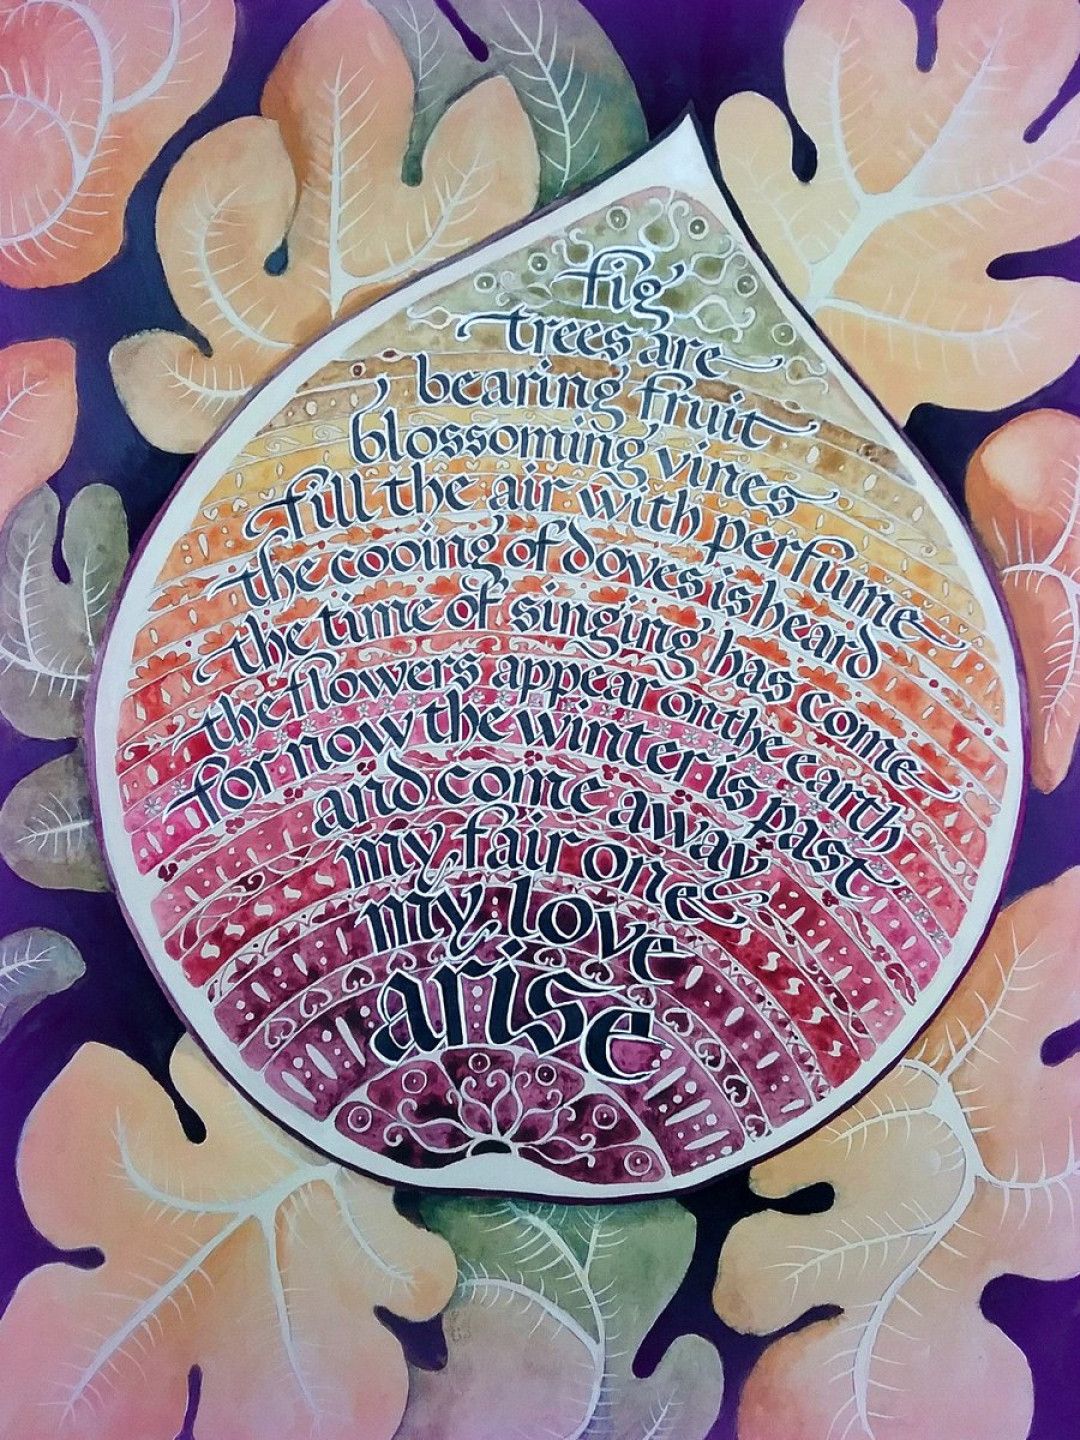 fig
trees are
bearing fruit
blossoming vines
fill the air with perfume
the cooing of doves is heard
the time of singing has come
the flowers appear on the earth
for now the winter is past
and come away
my fair one
my love
arise